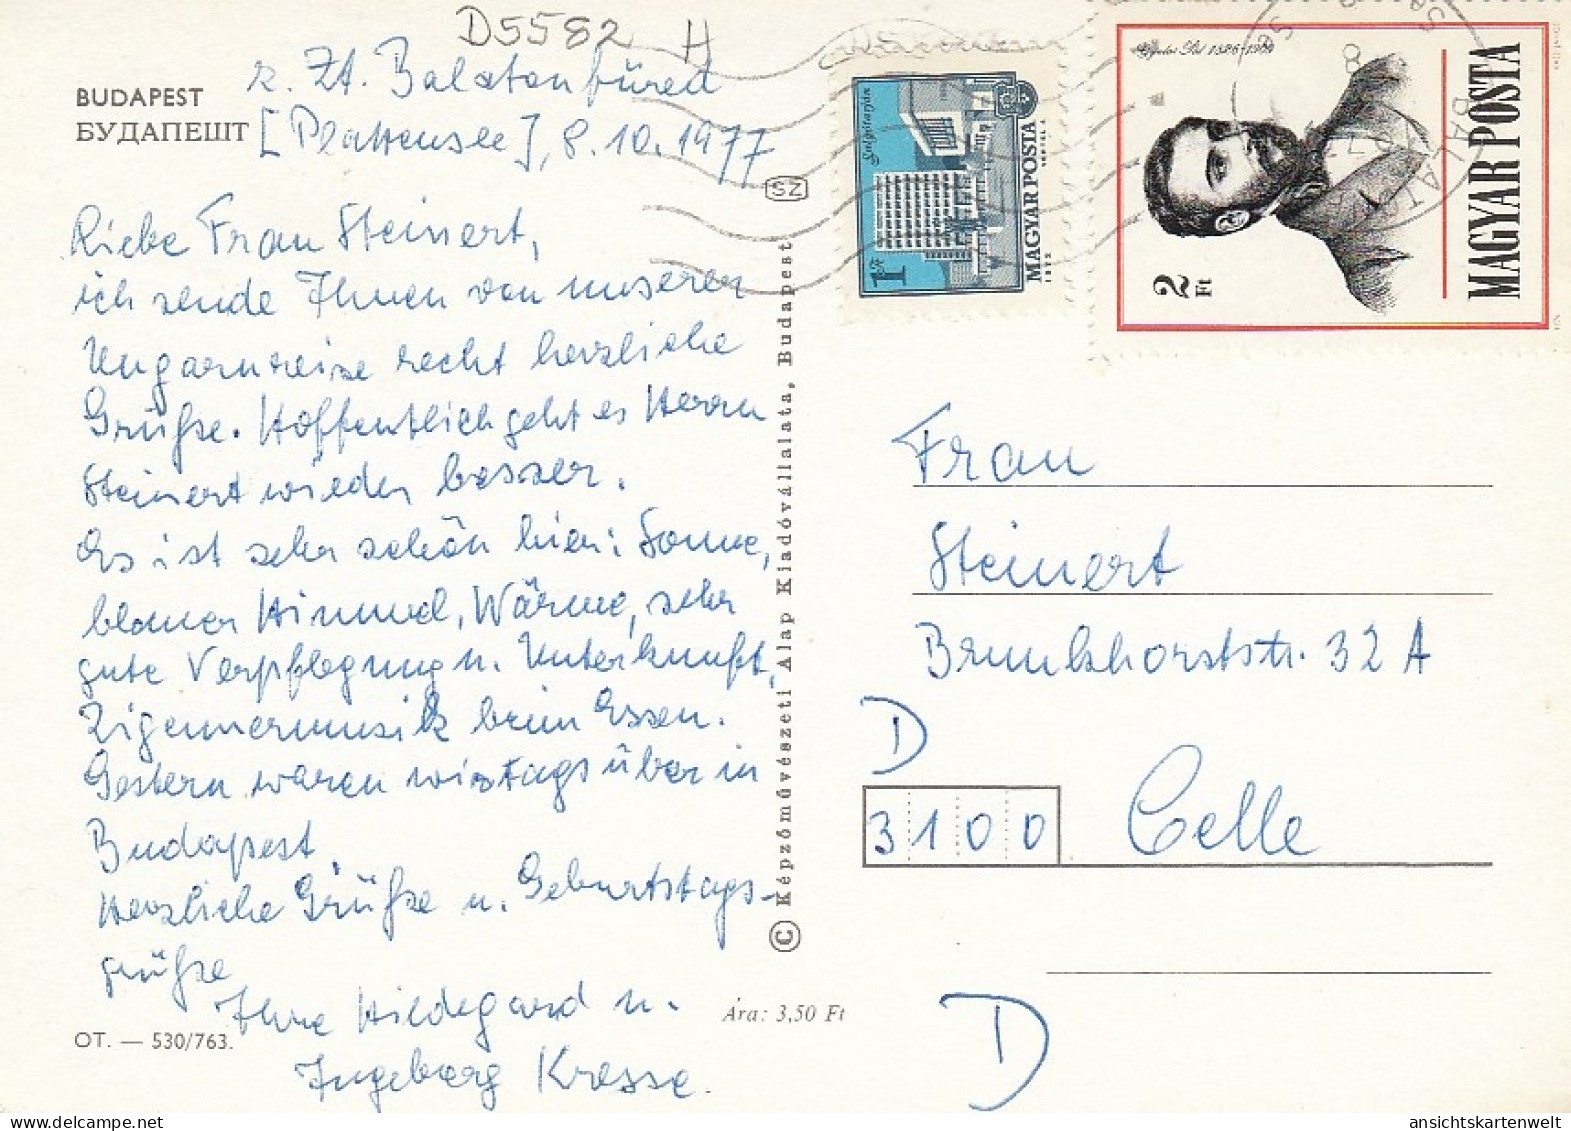 D5582 H
BUDAPEST
БУДАПЕШТ
z. Zt. Balatonfüred
[Plattensee], 8.10.1977
Liebe Frau Steinert,
ich sende Ihnen von unserer
Ungarnreise recht herzliche
Grüße. Hoffentlich geht es Herrn
Steinert wieder besser.
Es ist sehr schön hier: Sonne,
blauer Himmel, Wärme, sehr
gute Verpflegung u. Unterkunft,
Zigeunermusik beim Essen.
Gestern waren wir tagsüber in
Budapest.
Herzliche Grüße u. Geburtstags-
grüße
Ihre Hildegard u.
Ingeborg Kresse.
OT. — 530/763.
Ára: 3,50 Ft
SZ
© Képzőművészeti Alap Kiadóvállalata, Budapest
Salgótarján
1 Ft
MAGYAR POSTA
1972
2 Ft
MAGYAR POSTA
Frau
Steinert
Brunkhorststr. 32 A
D
3100 Celle
D
ansichtskartenwelt